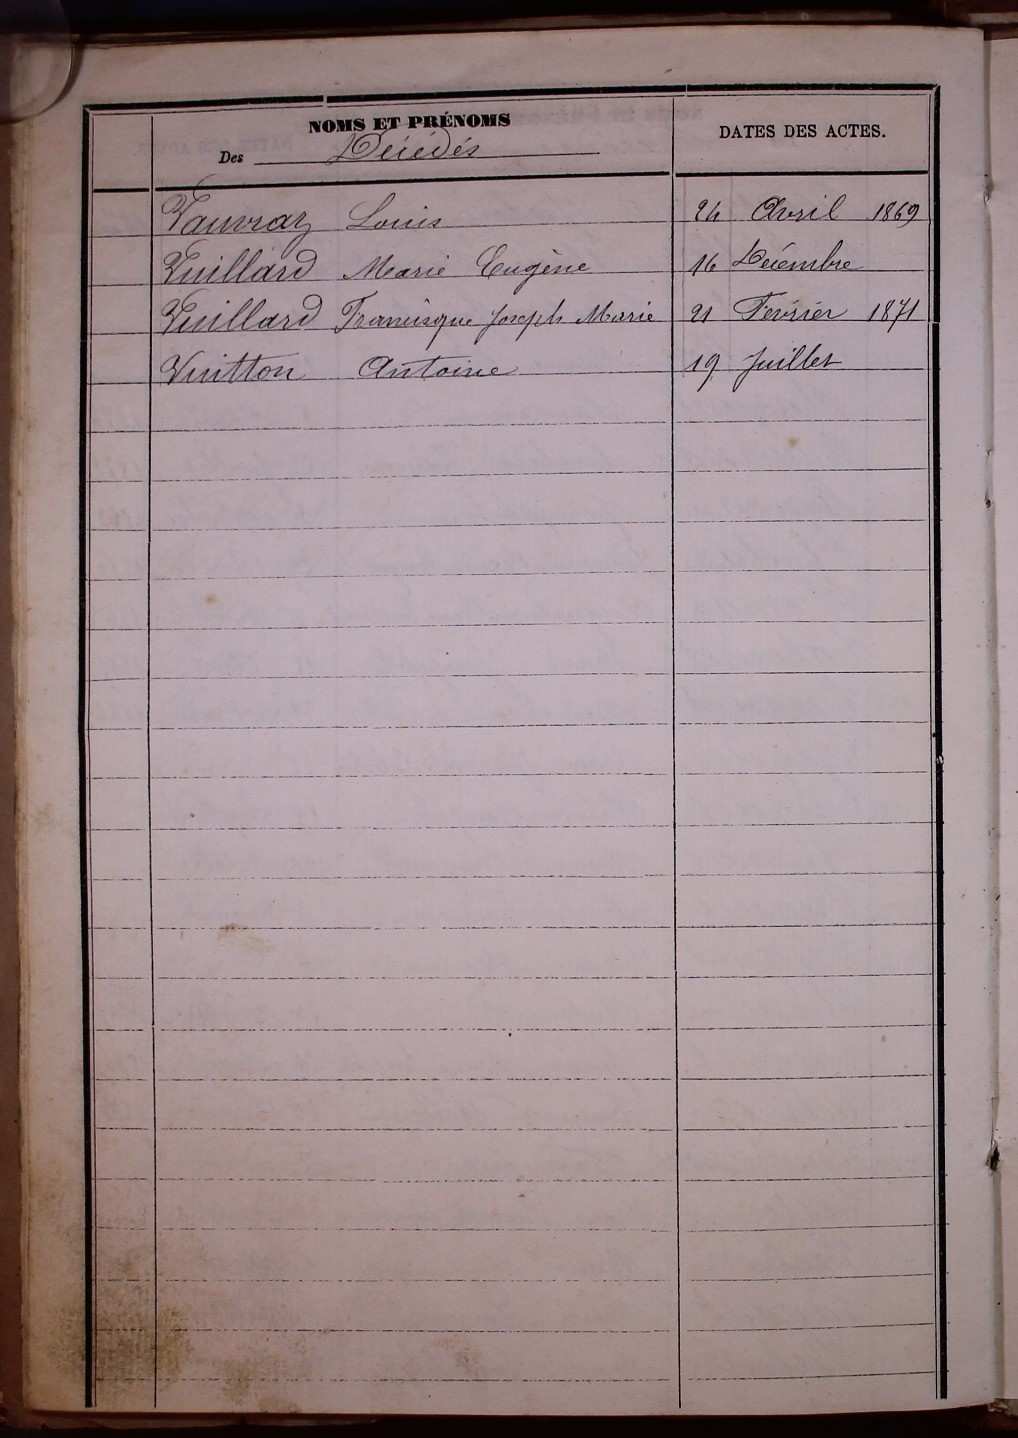 NOMS ET PRÉNOMS
Des Décédés
DATES DES ACTES.
Vauvray Louis 24 Avril 1869
Vuillard Marie Eugène 16 Décembre
Vuillard Francisque Joseph Marie 21 Février 1871
Vuitton Antoine 19 Juillet